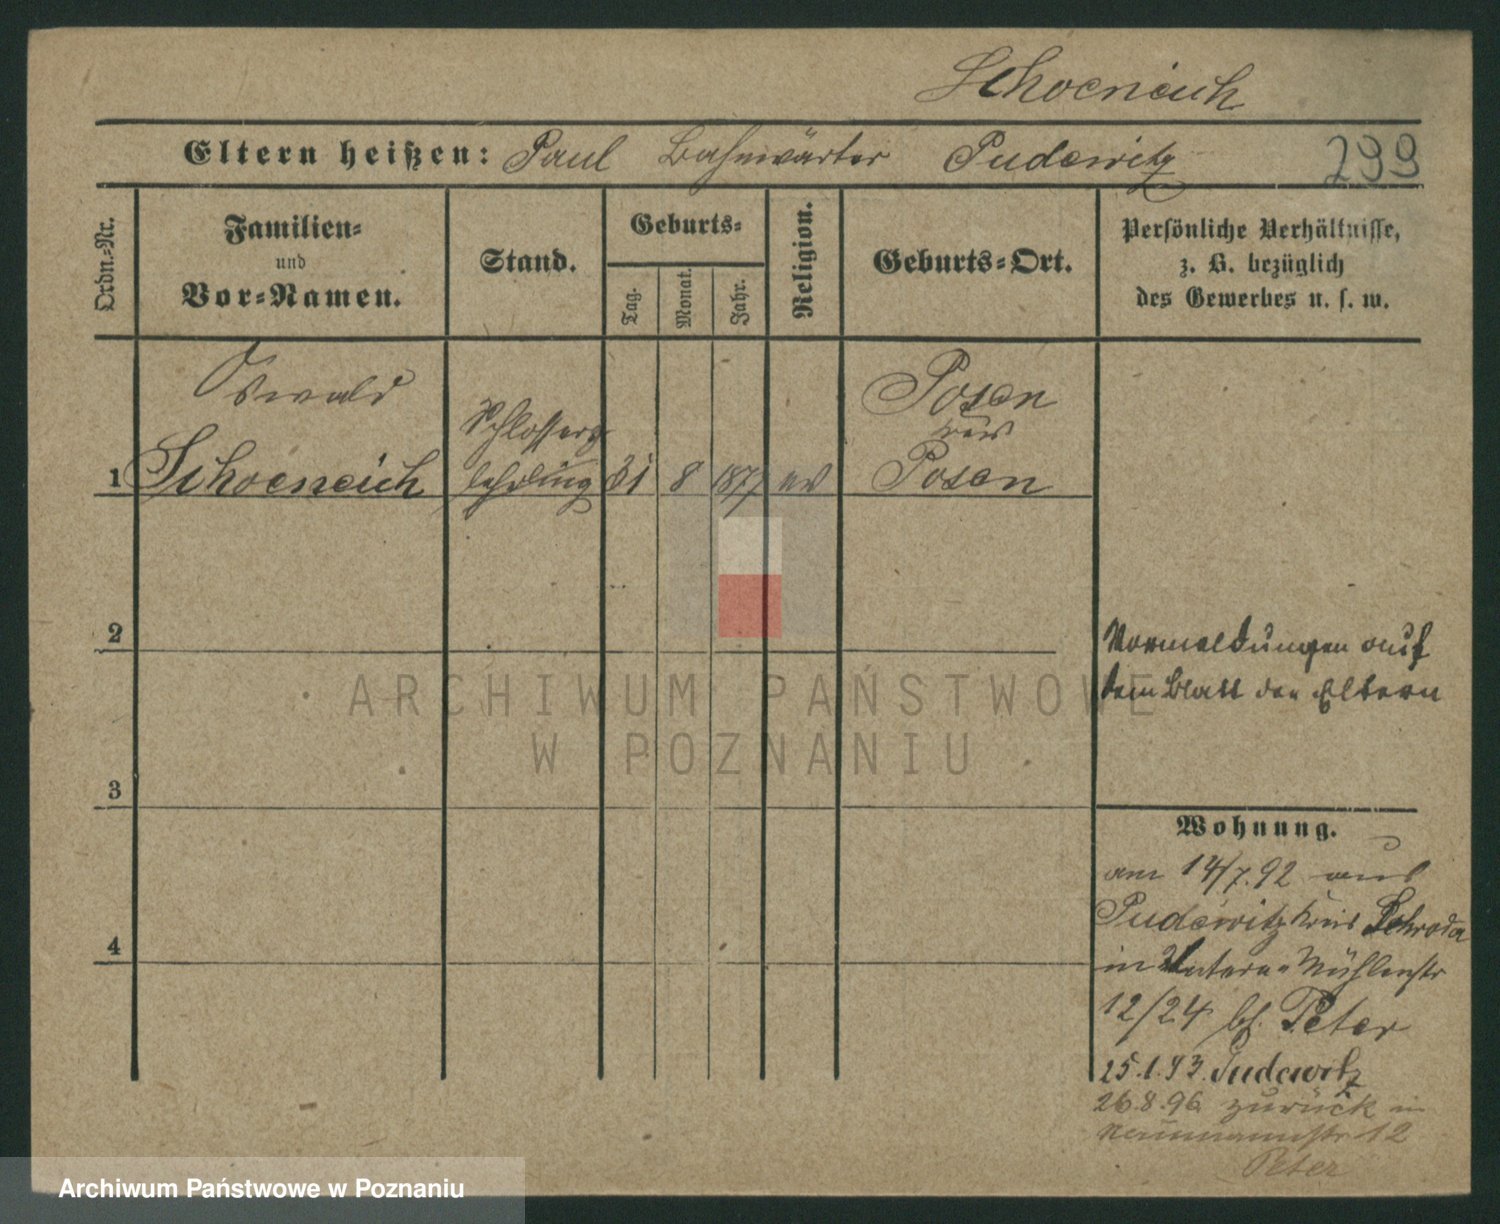 Schoeneich
Eltern heißen: Paul Bahnwärter Pudewitz 299
Ordn.-Nr.
Familien-
und
Vor-Namen.
Stand.
Geburts-
Tag.
Monat.
Jahr.
Religion.
Geburts-Ort.
Persönliche Verhältnisse,
z. B. bezüglich
des Gewerbes u. s. w.
Oswald
1 Schoeneich
Schlosser
lehrling
31 8 1877 ev
Posen
Kreis
Posen
2
3
4
Vormeldungen auf
dem Blatt der Eltern
Wohnung.
am 14/7.92 aus
Pudewitz Kreis Schroda
in Untere Mühlenstr
12/24 bei Peter
25.1.93. Pudewitz
26.8.96 zurück in
Naumannstr 12
Peter
ARCHIWUM PAŃSTWOWE
W POZNANIU
Archiwum Państwowe w Poznaniu